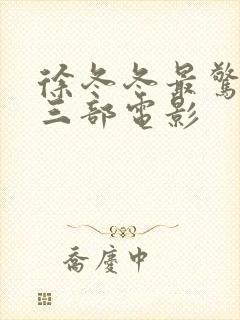 徐冬冬最驚
三部電影
喬慶中